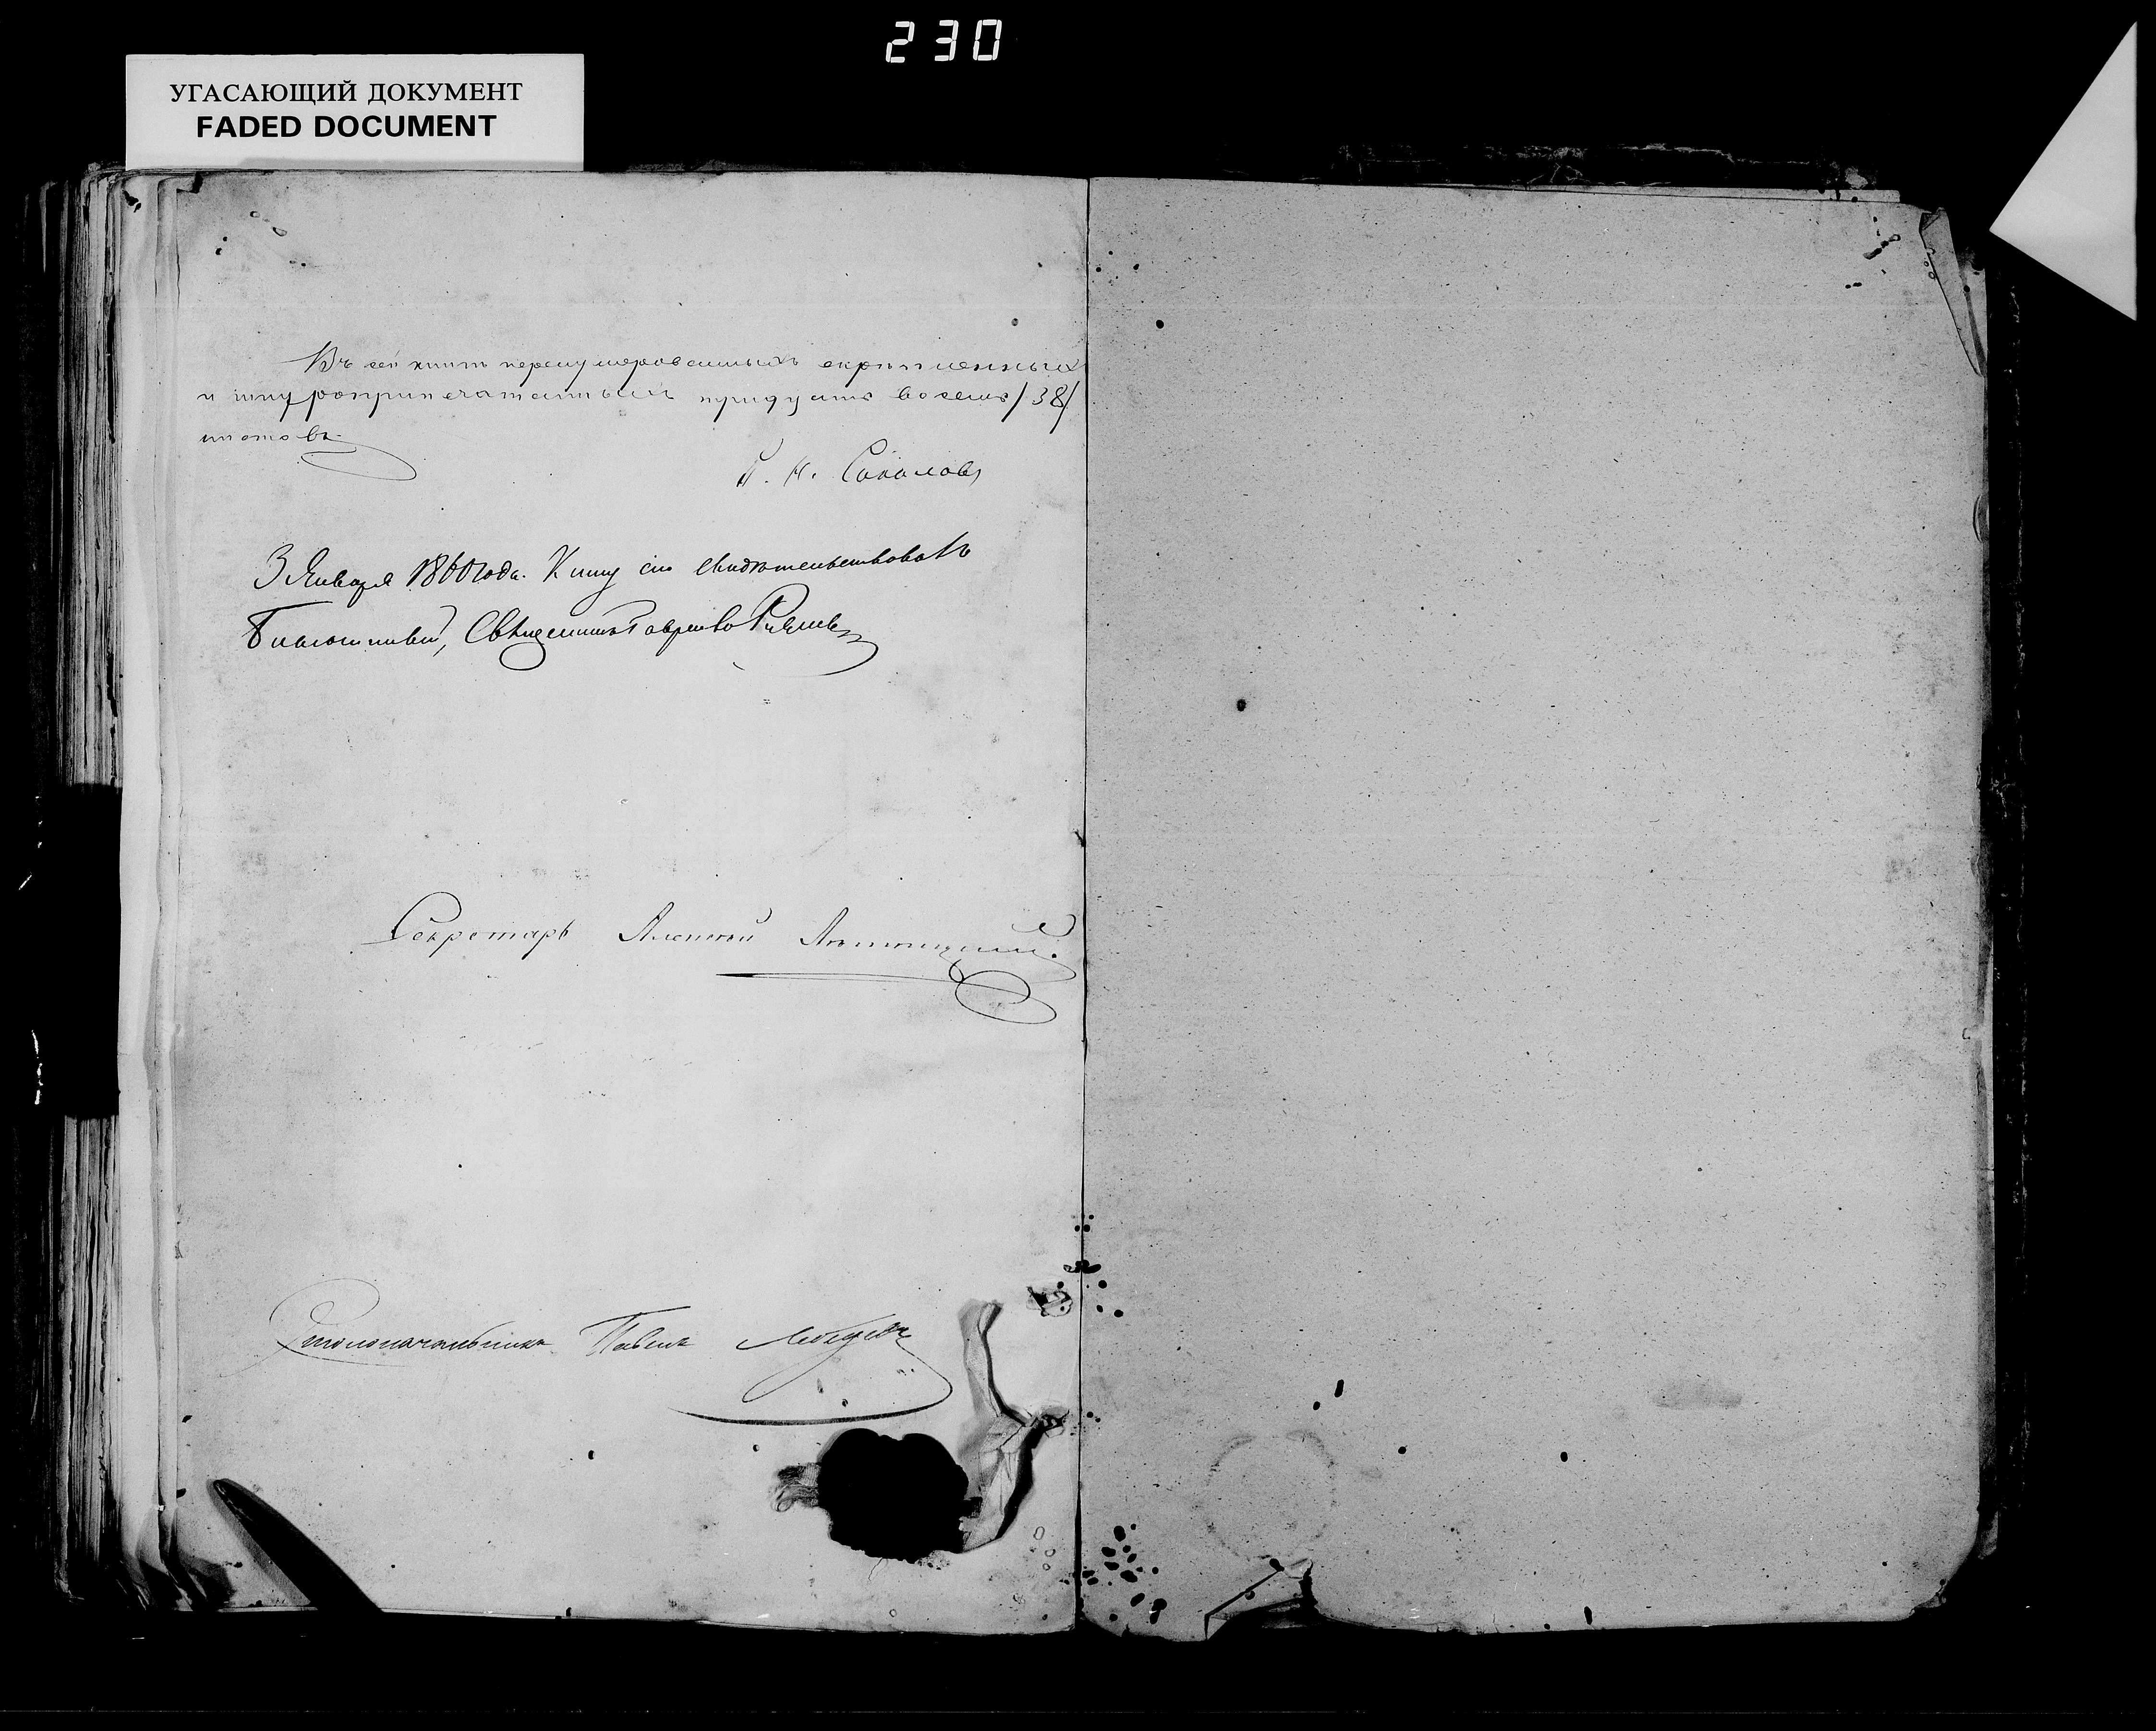 230
УГАСАЮЩИЙ ДОКУМЕНТ
FADED DOCUMENT
Въ сей книгѣ перенумерованныхъ скрѣпленныхъ
и шнуроприпечатанныхъ тридцать восемь /38/
листовъ
Соколовъ
3 Января 1860 года. Книгу сію свидѣтельствовалъ
Благочинный, Священникъ Гавріилъ
Секретарь Алексѣй
Столоначальникъ Павелъ Лебедевъ